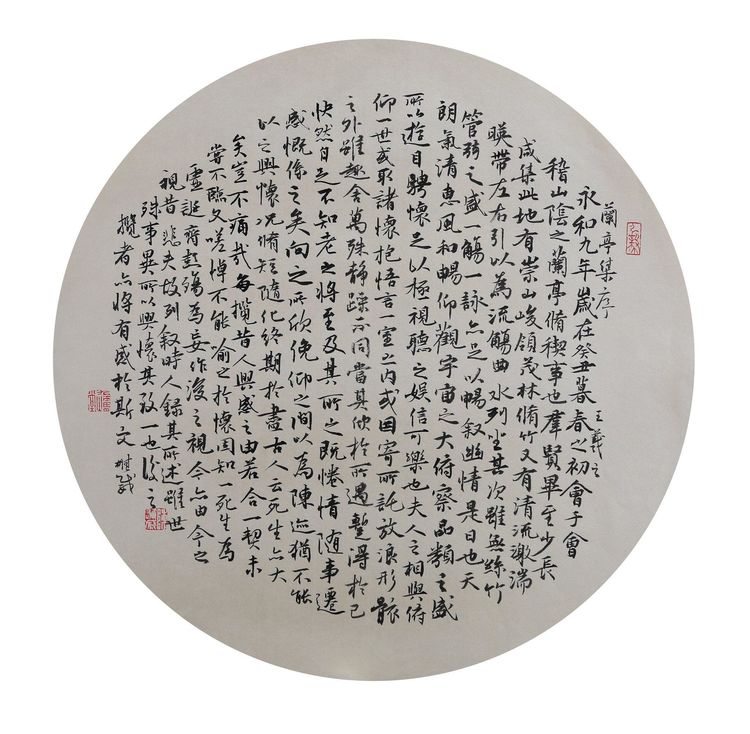 蘭亭集序 王羲之
永和九年歲在癸丑暮春之初會于會
稽山陰之蘭亭脩禊事也羣賢畢至少長
咸集此地有崇山峻領茂林脩竹又有清流激湍
暎帶左右引以為流觴曲水列坐其次雖無絲竹
管弦之盛一觴一詠亦足以暢敘幽情是日也天
朗氣清惠風和暢仰觀宇宙之大俯察品類之盛
所以遊目騁懷足以極視聽之娛信可樂也夫人之相與俯
仰一世或取諸懷抱悟言一室之內或因寄所託放浪形骸
之外雖趣舍萬殊靜躁不同當其欣於所遇蹔得於己
快然自足不知老之將至及其所之既惓情隨事遷
感慨係之矣向之所欣俛仰之間以為陳迹猶不能
以之興懷況脩短隨化終期於盡古人云死生亦大
矣豈不痛哉每攬昔人興感之由若合一契未
嘗不臨文嗟悼不能喻之於懷固知一死生為
虛誕齊彭殤為妄作後之視今亦由今之
視昔悲夫故列敘時人錄其所述雖世
殊事異所以興懷其致一也後之
攬者亦將有感於斯文